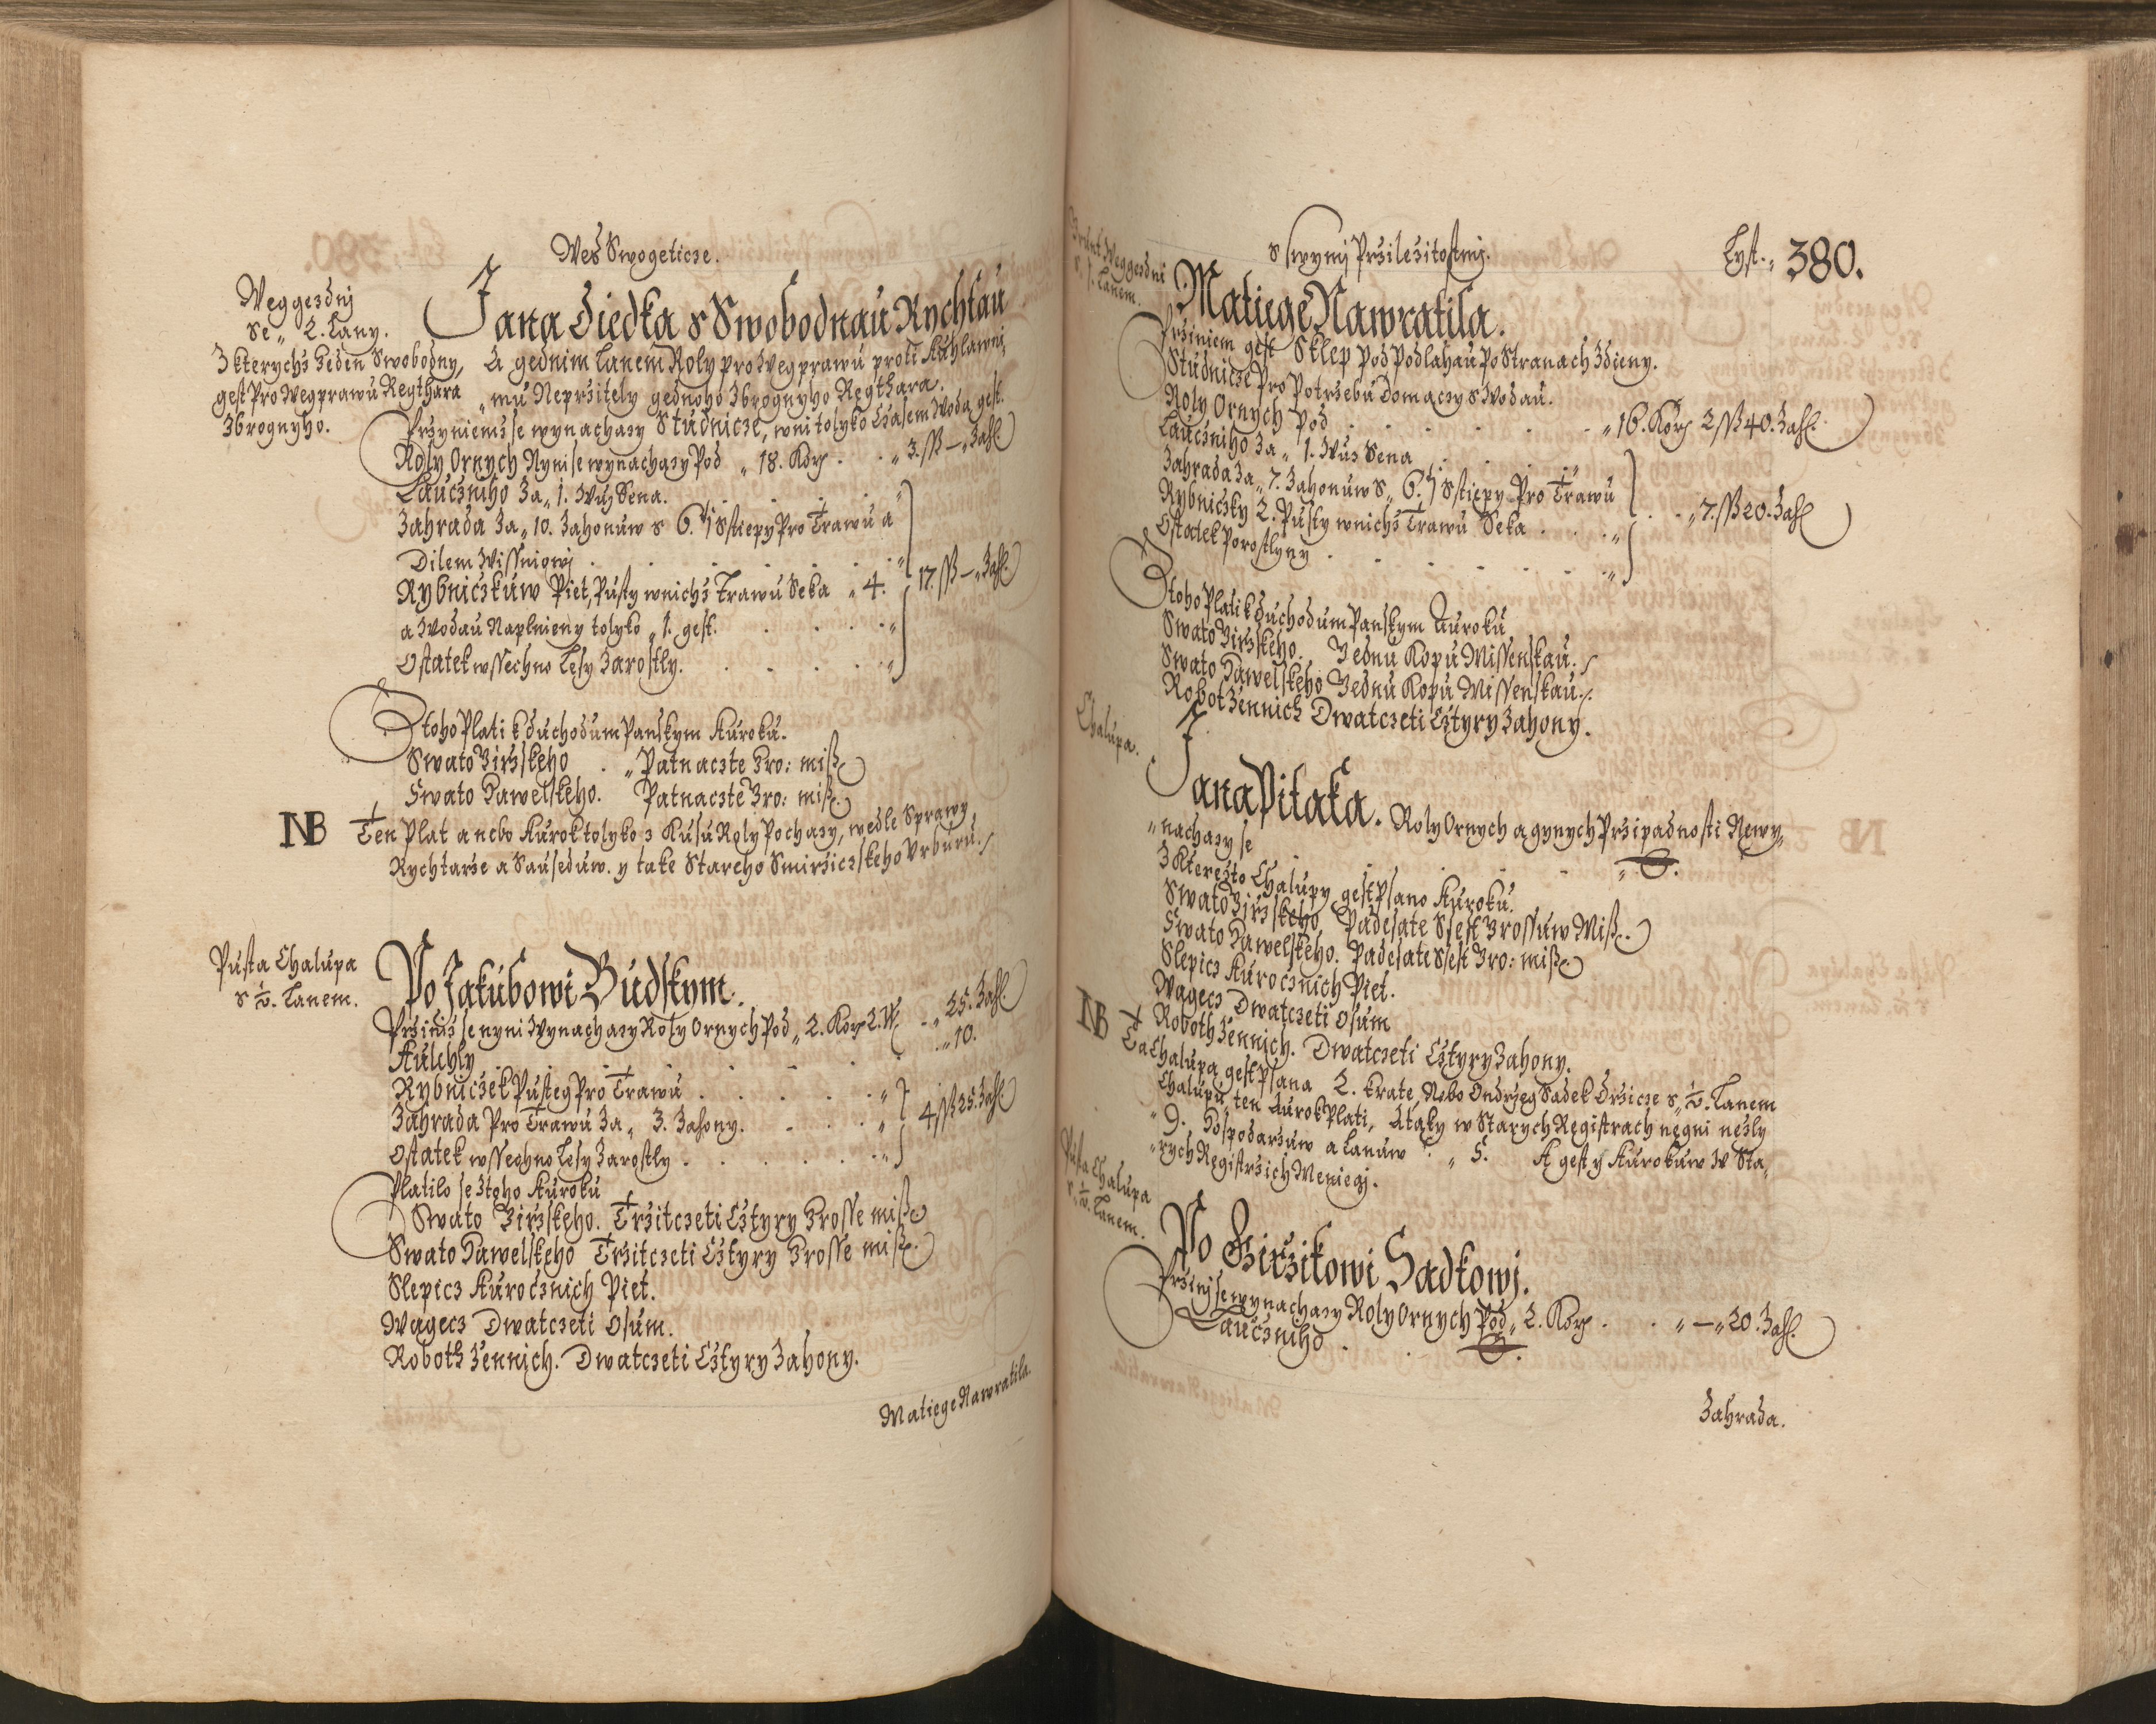 Wes Swogeticze.
Weggezdnj
se „ 2. Lany.
Z kterychz Geden Swobodny,
gest Pro Wegprawu Regthara
Zbrognyho.
Jana Diedka s Swobodnau Rychtau
A gednim Lanem Roly pro Wegprawu proti Auhlawni,
„mu Neprzitely gednoho Zbrognyho Regthara.
Przyniemz se wynachazy Studnicze, wni tolyko Czasem Woda gest.
Roly Ornych Nyni se wynachazy Pod „ 18. Kory . . „ 3. ss — „ Zahl
Lauczniho Za „ 1. Wuz Sena.
Zahrada Za „ 10. Zahonuw s 6. ss Sstiepy Pro Trawu a
Dilem Wissniowj
Rybniczkuw Piet, Pusty wnichz Trawu Seka „ 4. 17. ss — „ Zahl.
a Wodau Naplnieny tolyko „ 1. gest.
Ostatek wssechno Lesy Zarostly.
Ztoho Plati k Duchodum Panskym Auroku.
Swato Girzskeho . „ Patnaczte Gro: miss
Swato Hawelskeho. Patnaczte Gro: miss.
NB Ten Plat anebo Aurok tolyko z Kusu Roly Pochazy, wedle Sprawy
Rychtarze a Sauseduw. y take Stareho Smirziczskeho Urburu.
Pusta Chalupa
s ½. Lanem.
Po Jakubowi Budskym.
Przinij se nyni Wynachazy Roly Ornych Pod „ 2. Kory 2. W „ 25. Zahl.
Aulehly . . . „ 10.
Rybniczek Pusteg Pro Trawu
Zahrada Pro Trawu Za „ 3. Zahony. 4 ss 25. Zahl.
Ostatek wssechno Lesy Zarostly
Platilo se Ztoho Auroku
Swato Girzskeho. Trzitczeti Cztyry Grosse miss
Swato Hawelskeho Trzitczeti Cztyry Grosse miss.
Slepicz Aurocznich Piet.
Wagecz Dwatczeti Osum.
Roboth Zennich. Dwatczeti Cztyry Zahony.
Matiege Nawratila.
s swymj Przilezitostmj.
Lyst. „ 380.
Grunt Weggezdni
s. 1. Lanem.
Matiege Nawratila.
Prziniem gest Sklep Pod Podlahau Po Stranach Zdieny.
Studnicze Pro Potrzebu Domaczy s Wodau.
Roly Ornych Pod . . . „ 16. Kory 2 ss 40. Zahl.
Lauczniho Za „ 1. Wuz Sena
Zahrada Za „ 7. Zahonuw s „ 6. ss Sstiepy Pro Trawu
Rybniczky 2. Pusty wnichz Trawu Seka . . „ 7. ss 20. Zahl
Ostatek Porostlyny
Ztoho Plati k Duchodum Panskym Auroku
Swato Girzskeho. Gednu Kopu Missenskau.
Swato Hawelskeho Gednu Kopu Missenskau.
Robot Zennich Dwatczeti Cztyry Zahony.
Chalupa.
Jana Pitaka. Roly Ornych a gynych Przipadnosti Newy,
„nachazy se
Z Kterezto Chalupy gest Psano Auroku.
Swato Girzskeho Padesate Ssest Grossuw Miss.
Swato Hawelskeho. Padesate Ssest Gro: miss.
Slepicz Aurocznich Piet.
Wagecz Dwatczeti Osum
Roboth Zennich. Dwatczeti Cztyry Zahony.
NB Ta Chalupa gest Psana 2. krate, Nebo Ondrzeg Sadek Drzicze s „ ½. Lanem
Chalupu ten Aurok Plati, A taky w Starych Registrach negni nezly
„ 9. Hospodarzuw a Lanuw „ 5. A gest y Aurokuw W Sta,
„rych Registrzich Meniegj.
Pusta Chalupa
s ½. Lanem.
Po Girzikowi Sadkowj.
Przinij se wynachazy Roly Ornych Pod „ 2. Kory . . „ — „ 20. Zahl.
Lauczniho
Zahrada.